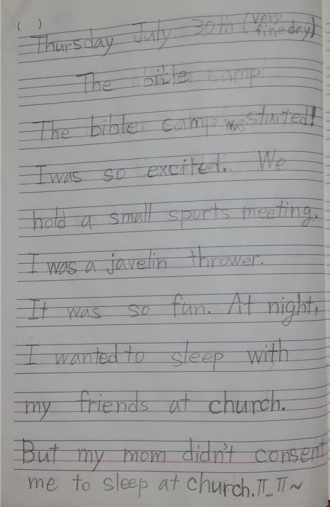 ( )
Thursday July 30th (very fine day)
The bible camp
The bible camp was started!
I was so excited. We
hold a small sports meeting.
I was a javelin thrower.
It was so fun. At night,
I wanted to sleep with
my friends at church.
But my mom didn't consent
me to sleep at church.ㅠ_ㅠ~